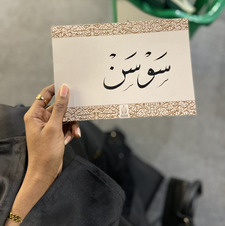 سَوْسَنْ